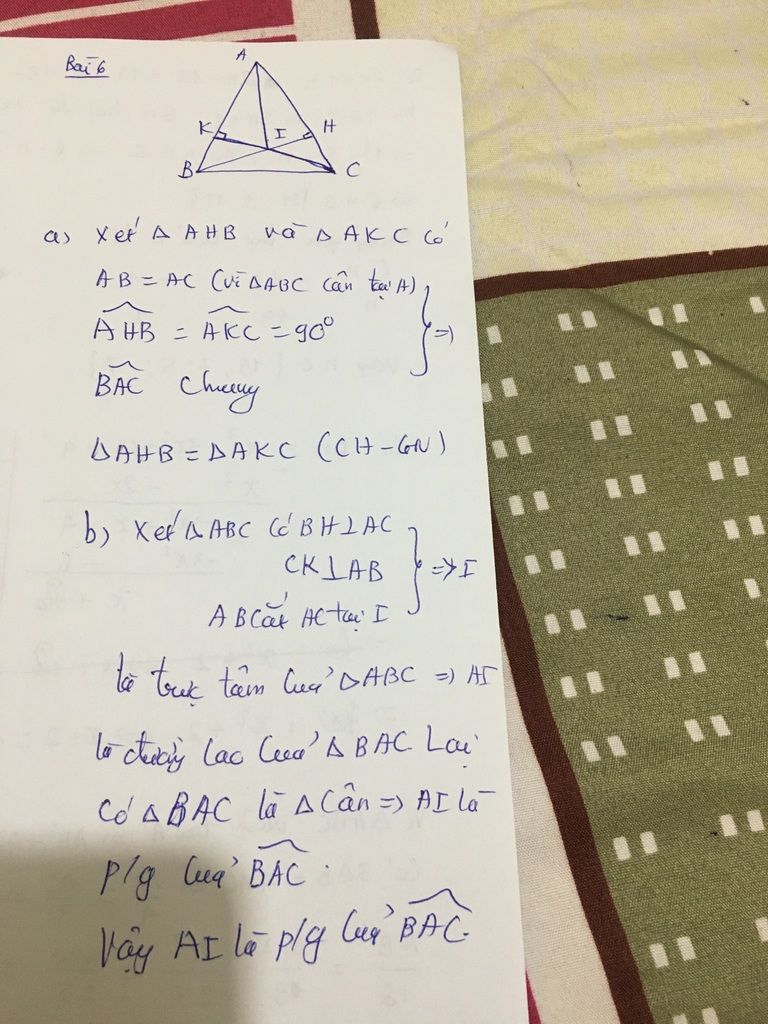 Bài 6
A
K I H
B C
a) Xét Δ AHB và Δ AKC có
AB = AC (vì ΔABC cân tại A)
AHB = AKC = 90° } =>
BAC chung
ΔAHB = ΔAKC (CH-GN)
b) Xét ΔABC có BH⊥AC
CK⊥AB } => I
AB cắt AC tại I
là trực tâm của ΔABC => AI
là đường cao của Δ BAC Lại
có ΔBAC là Δ cân => AI là
p/g của BAC.
Vậy AI là p/g của BAC.